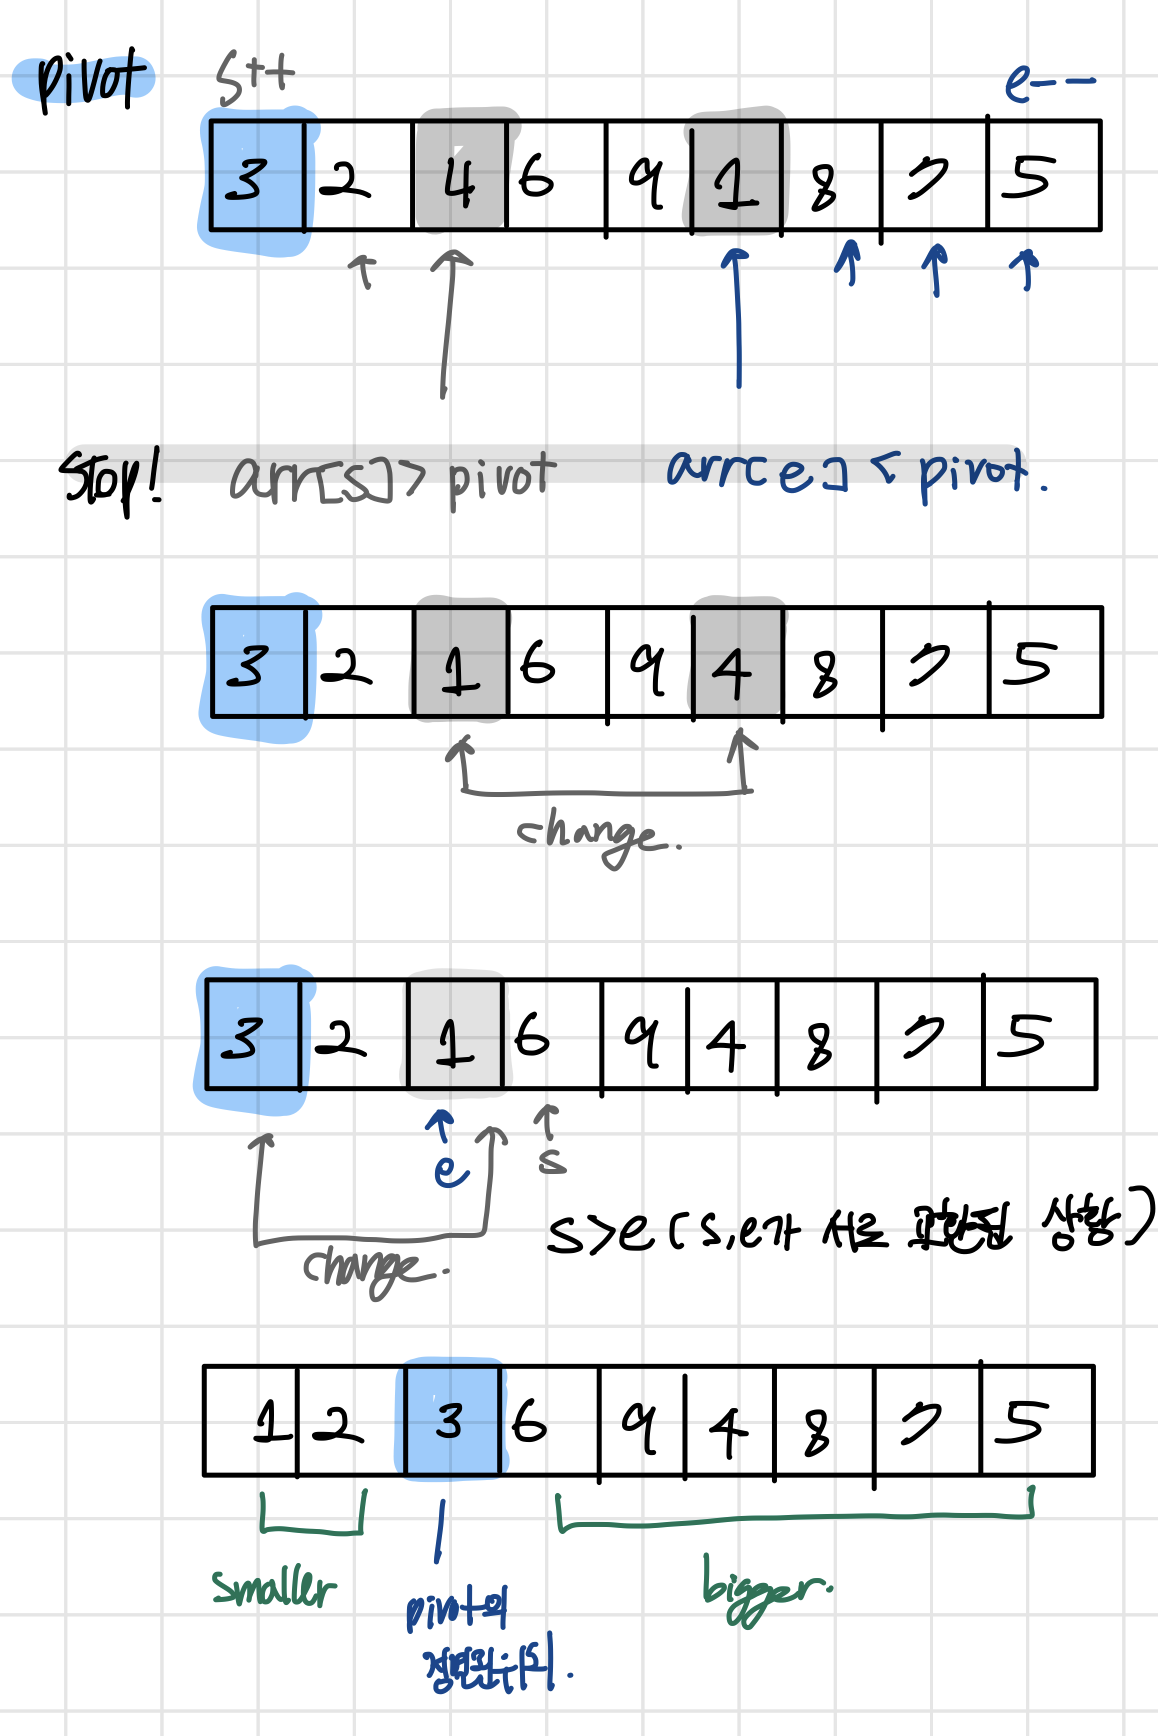 pivot s++ e--
3 2 4 6 9 1 8 7 5
stop! arr[s]>pivot arr[e]<pivot.
3 2 1 6 9 4 8 7 5
change.
3 2 1 6 9 4 8 7 5
e s
s>e (s,e가 서로 교환된 상황)
change.
1 2 3 6 9 4 8 7 5
smaller pivot의 bigger.
정렬완료위치.